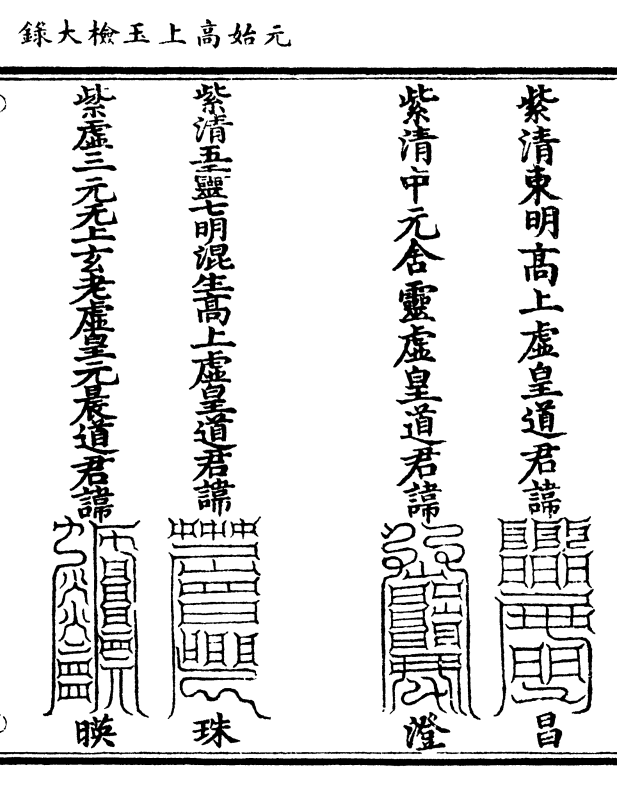 元始高上玉檢大錄
紫清東明高上虛皇道君諱
昌
紫清中元舍靈虛皇道君諱
澄
紫清五靈七明混生高上虛皇道君諱
珠
紫虛三元无上玄老虛皇元晨道君諱
暎